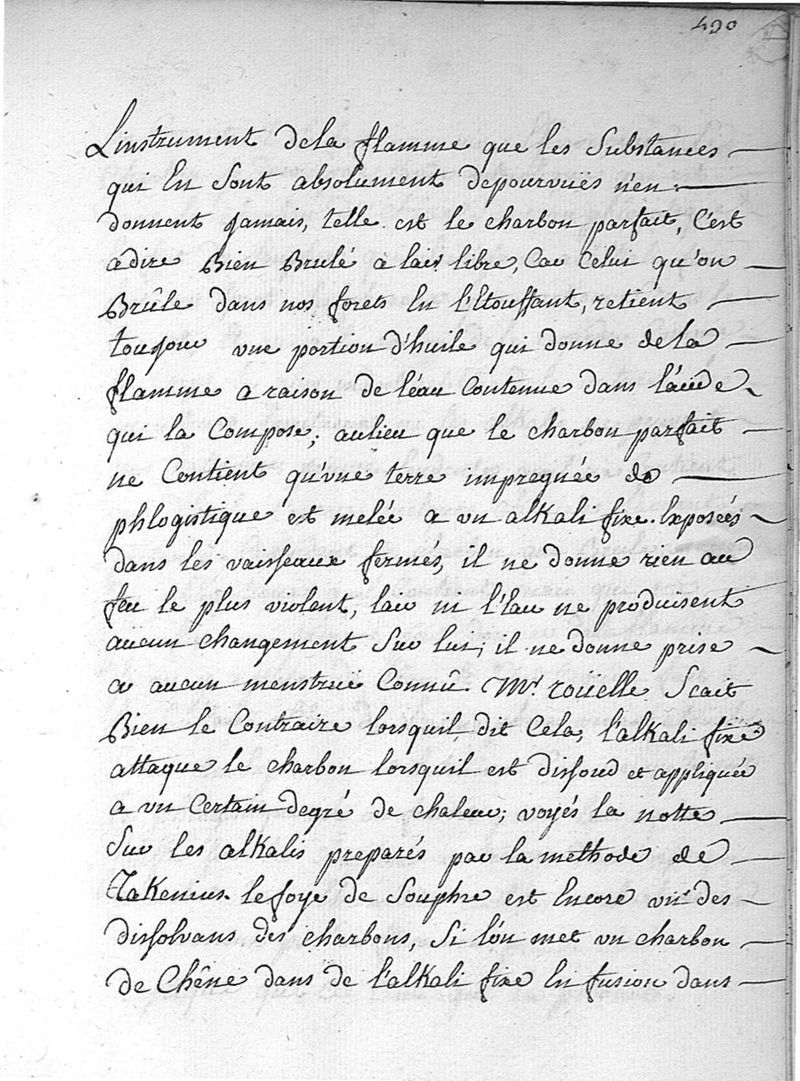 490
L'instrument dela flamme que les Substances
qui En Sont absolument depourvuës n'en
donnent jamais, telle est le charbon parfait, C'est
adire Bien Brulé a lair libre, Car Celui qu'on
Brûle dans nos forets En l'Etouffant, retient
toujour vne portion d'huile qui donne dela
flamme a raison de l'eau Contenue dans l'acide
qui la Compose; aulieu que le charbon parfait
ne Contient qu'vne terre impregnée de
phlogistique et melée a vn alkali fixe. Exposées
dans les vaisseaux fermés, il ne donne rien au
feu le plus violent, lair ni l'Eau ne produisent
aucun changement Sur lui; il ne donne prise
a aucun menstruë Connû. Mr. roüelle Scait
Bien le Contraire lorsquil dit Cela, l'alkali fixe
attaque le charbon lorsquil est dissoud et appliquée
a vn Certain degré de chaleur; voyés la notte
Sur les alkalis preparés par la methode de
Takenius. le foye de Souphre est Encore vn des
dissolvans des charbons, Si l'on met vn charbon
de Chêne dans de l'alkali fixe En fusion dans